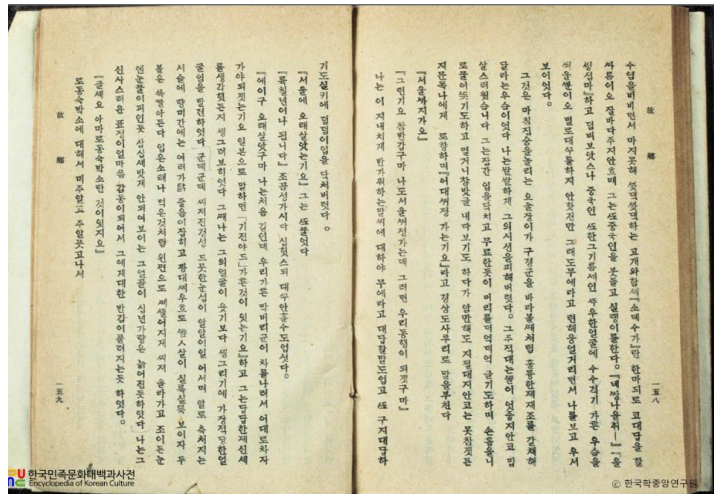 故鄕
一五八
수염을비비면서 마지못해 ᄭᅳ덕ᄭᅳ덕하는 고개와함ᄭᅴ「소데수가」란 한마듸로 코대답을 할
ᄯᅡ름이오 잘바다주지안흐매 그는ᄯᅩ중국인을 붓들고 실랭이를한다。
하고 덤벼보앗스나 중국인 ᄯᅩ한그기름ᄭᅵ인 얼굴에 수수ᄭᅥᆨ기 가튼 우슴을
ᄯᅴ울ᄲᅮᆫ이오 별로대ᄭᅮ를하지 안핫건만 그래도무에라고 련해웅얼거리면서 나를보고 우서
보이엇다。
그것은 마치짐승을놀리는 요술쟁이가 구경군을 바라볼ᄯᅢ처럼 훌륭한제재조를 갈채해
달라는우슴이엇다 나는쌀쌀하게 그의시선을피해버렷다。그주적대는ᄭᅩᆯ이 엇줍지안코 밉
살스러웟슴니다 그는잠간 입을닥치고 무료한듯이 머리를더억더억 긁기도하며 손톱을니
로물어ᄯᅳᆺ기도하고 멀거니창밧글 내다보기도 하다가 암만해도 지절대지안코는 못참겟든
지문득나에게로 향하며「어대ᄭᅥ정 가는기요」라고 경상도사투리로 말을부친다
「서울ᄭᅡ지가오」
「그런기요 참반갑구마 나도서울ᄭᅥ정가는데 그러면 우리동행이 되겟구마」
나는 이 지내치게 반가워하는말씨에 대하야 무에라고 대답할말도업고 ᄯᅩ 구지대답하
기도실키에 덤덤이입을 닥쳐버렷다。
「서울에 오래살앗는기요」그는 ᄯᅩ물엇다
「륙칠년이나 됩니다」조곰성가시다 십헛스되 대ᄭᅮ안흘수도업섯다。
「에이구 오래살앗구마 나는처음 길인데 우리가튼 막버리군이 차를나려서 어대로차자
가야되겟는기요 일본으로말하면「기진야드」가튼것이 잇는기요」하고 그는답답한제신세
를생각햇든지 씽그려보히엇다 그ᄯᅢ나는 그의얼굴이 웃기보다 씽그리기에 가장적당한얼
굴임을 발견하엿다 군데군데 ᄶᅵ저진겅성 드뭇한눈섭이 알알이일어서며 알로 축처지는
서슬에 량미간에는 여러가닭 줄음이잡히고 광대ᄲᅧ우흐로 ᄲᅣᆷ人살이 실룩실룩 보이자 두
볼은 ᄶᅩᆨ ᄲᅡᆯ아든다 입은소태나 먹은것처럼 왼편으로 ᄲᅵᄯᅮᆯ어지게 ᄶᅵ저 올라가고 조이든눈
엔눈물이괴인듯 삼십세밧게 안되여보이는 그얼골이 십년가량은 늙어진듯하얏다 나는그
신사스러운 표정이얼마ᄶᅳᆷ 감동이되여서 그에게대한 반감이풀려지는듯 하엿다。
「글세요 아마로동숙박소란 것이잇지요」
로동숙박소에 대해서 미주알고 주알뭇고나서
故鄕
一五九
한국민족문화대백과사전
Encyclopedia of Korean Culture
ⓒ 한국학중앙연구원